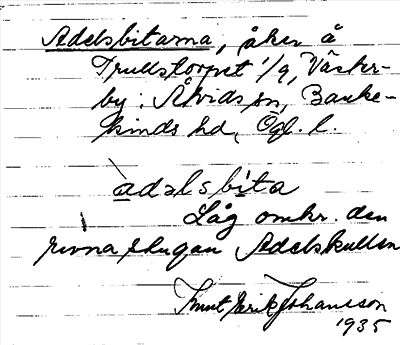 Adelsbitarna, åker å
Trullstorpet 1/9, Väster-
by, Åtvids sn, Banke-
kinds hd, Ögl. l.
àdəlsbita
Låg omkr. den
rivna stugan Adelskullen
Knut Erik Johansson
1935